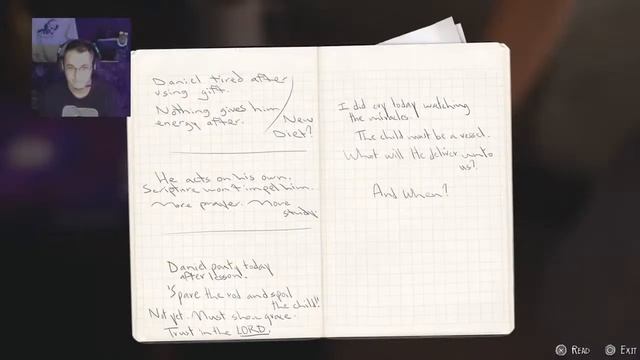 Daniel tired after
using gift.
Nothing gives him
energy after.
New
Diet?
He acts on his own.
Scripture won't impel him.
More prayer. More
study.
Daniel pouty today
after lesson.
"Spare the rod and spoil
the child".
Not yet. Must show grace.
Trust in the LORD.
I did cry today watching
the miracles.
The child must be a vessel.
What will He deliver unto
us?
And When?
READ
EXIT